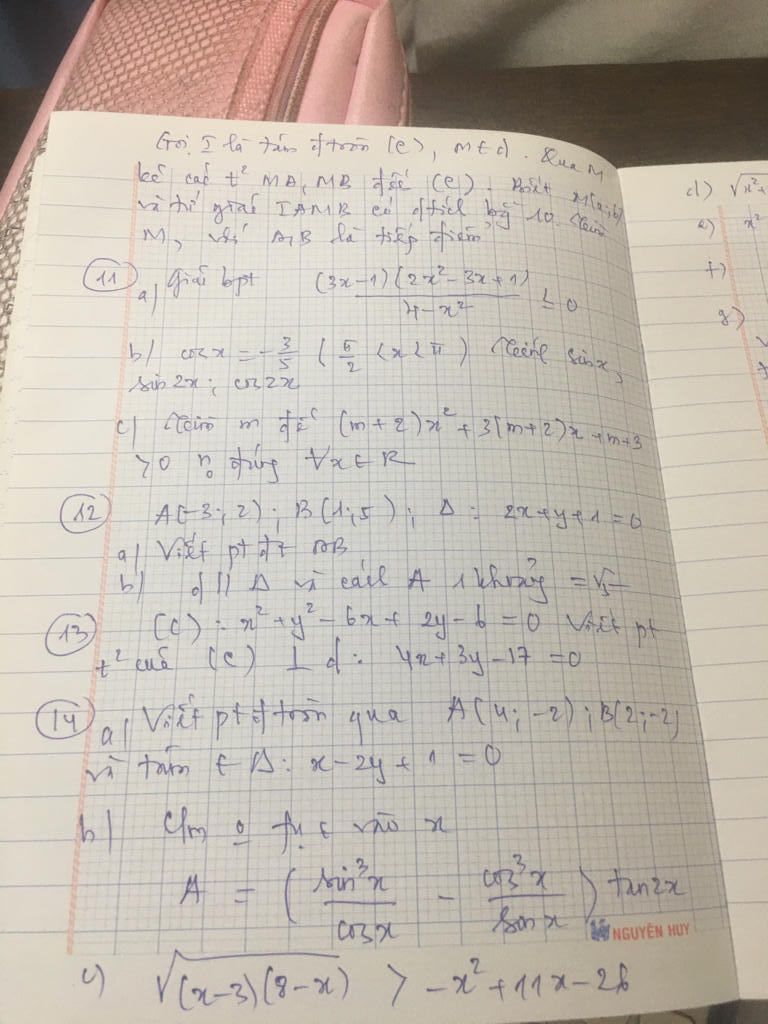 Gọi I là tâm đtròn (C), M ∈ d. Qua M
kẻ các t² MA, MB đến (C). Biết M(a;b)
và tứ giác IAMB có dtích bg 10. Tìm
M, với A,B là tiếp điểm
11 a) Giải bpt (3x-1)(2x²-3x+1)/(4-x²) ≤ 0
b) cosx = -3/5 ( π/2 < x < π ) Tính sinx,
sin2x; cos2x
c) Tìm m để (m+2)x² + 3(m+2)x + m+3
>0 n₀ đúng ∀x ∈ R
12 A(-3; 2); B(1; 5); Δ: 2x+y+1=0
a) Viết pt đt AB
b) d // Δ và cách A 1 khoảng = √5
13 (C): x²+y²-6x+2y-6=0 Viết pt
t² của (C) ⊥ d: 4x+3y-17=0
14 a) Viết pt đtròn qua A(4; -2); B(2;-2)
và tâm ∈ Δ: x-2y+1=0
b) C/m o ̲ fụ € vào x
A = ( sin³x/cosx - cos³x/sinx ) tan2x
NGUYÊN HUY
c) √((x-3)(8-x)) > -x²+11x-26
d) √x²+
e) x²
f)
g)